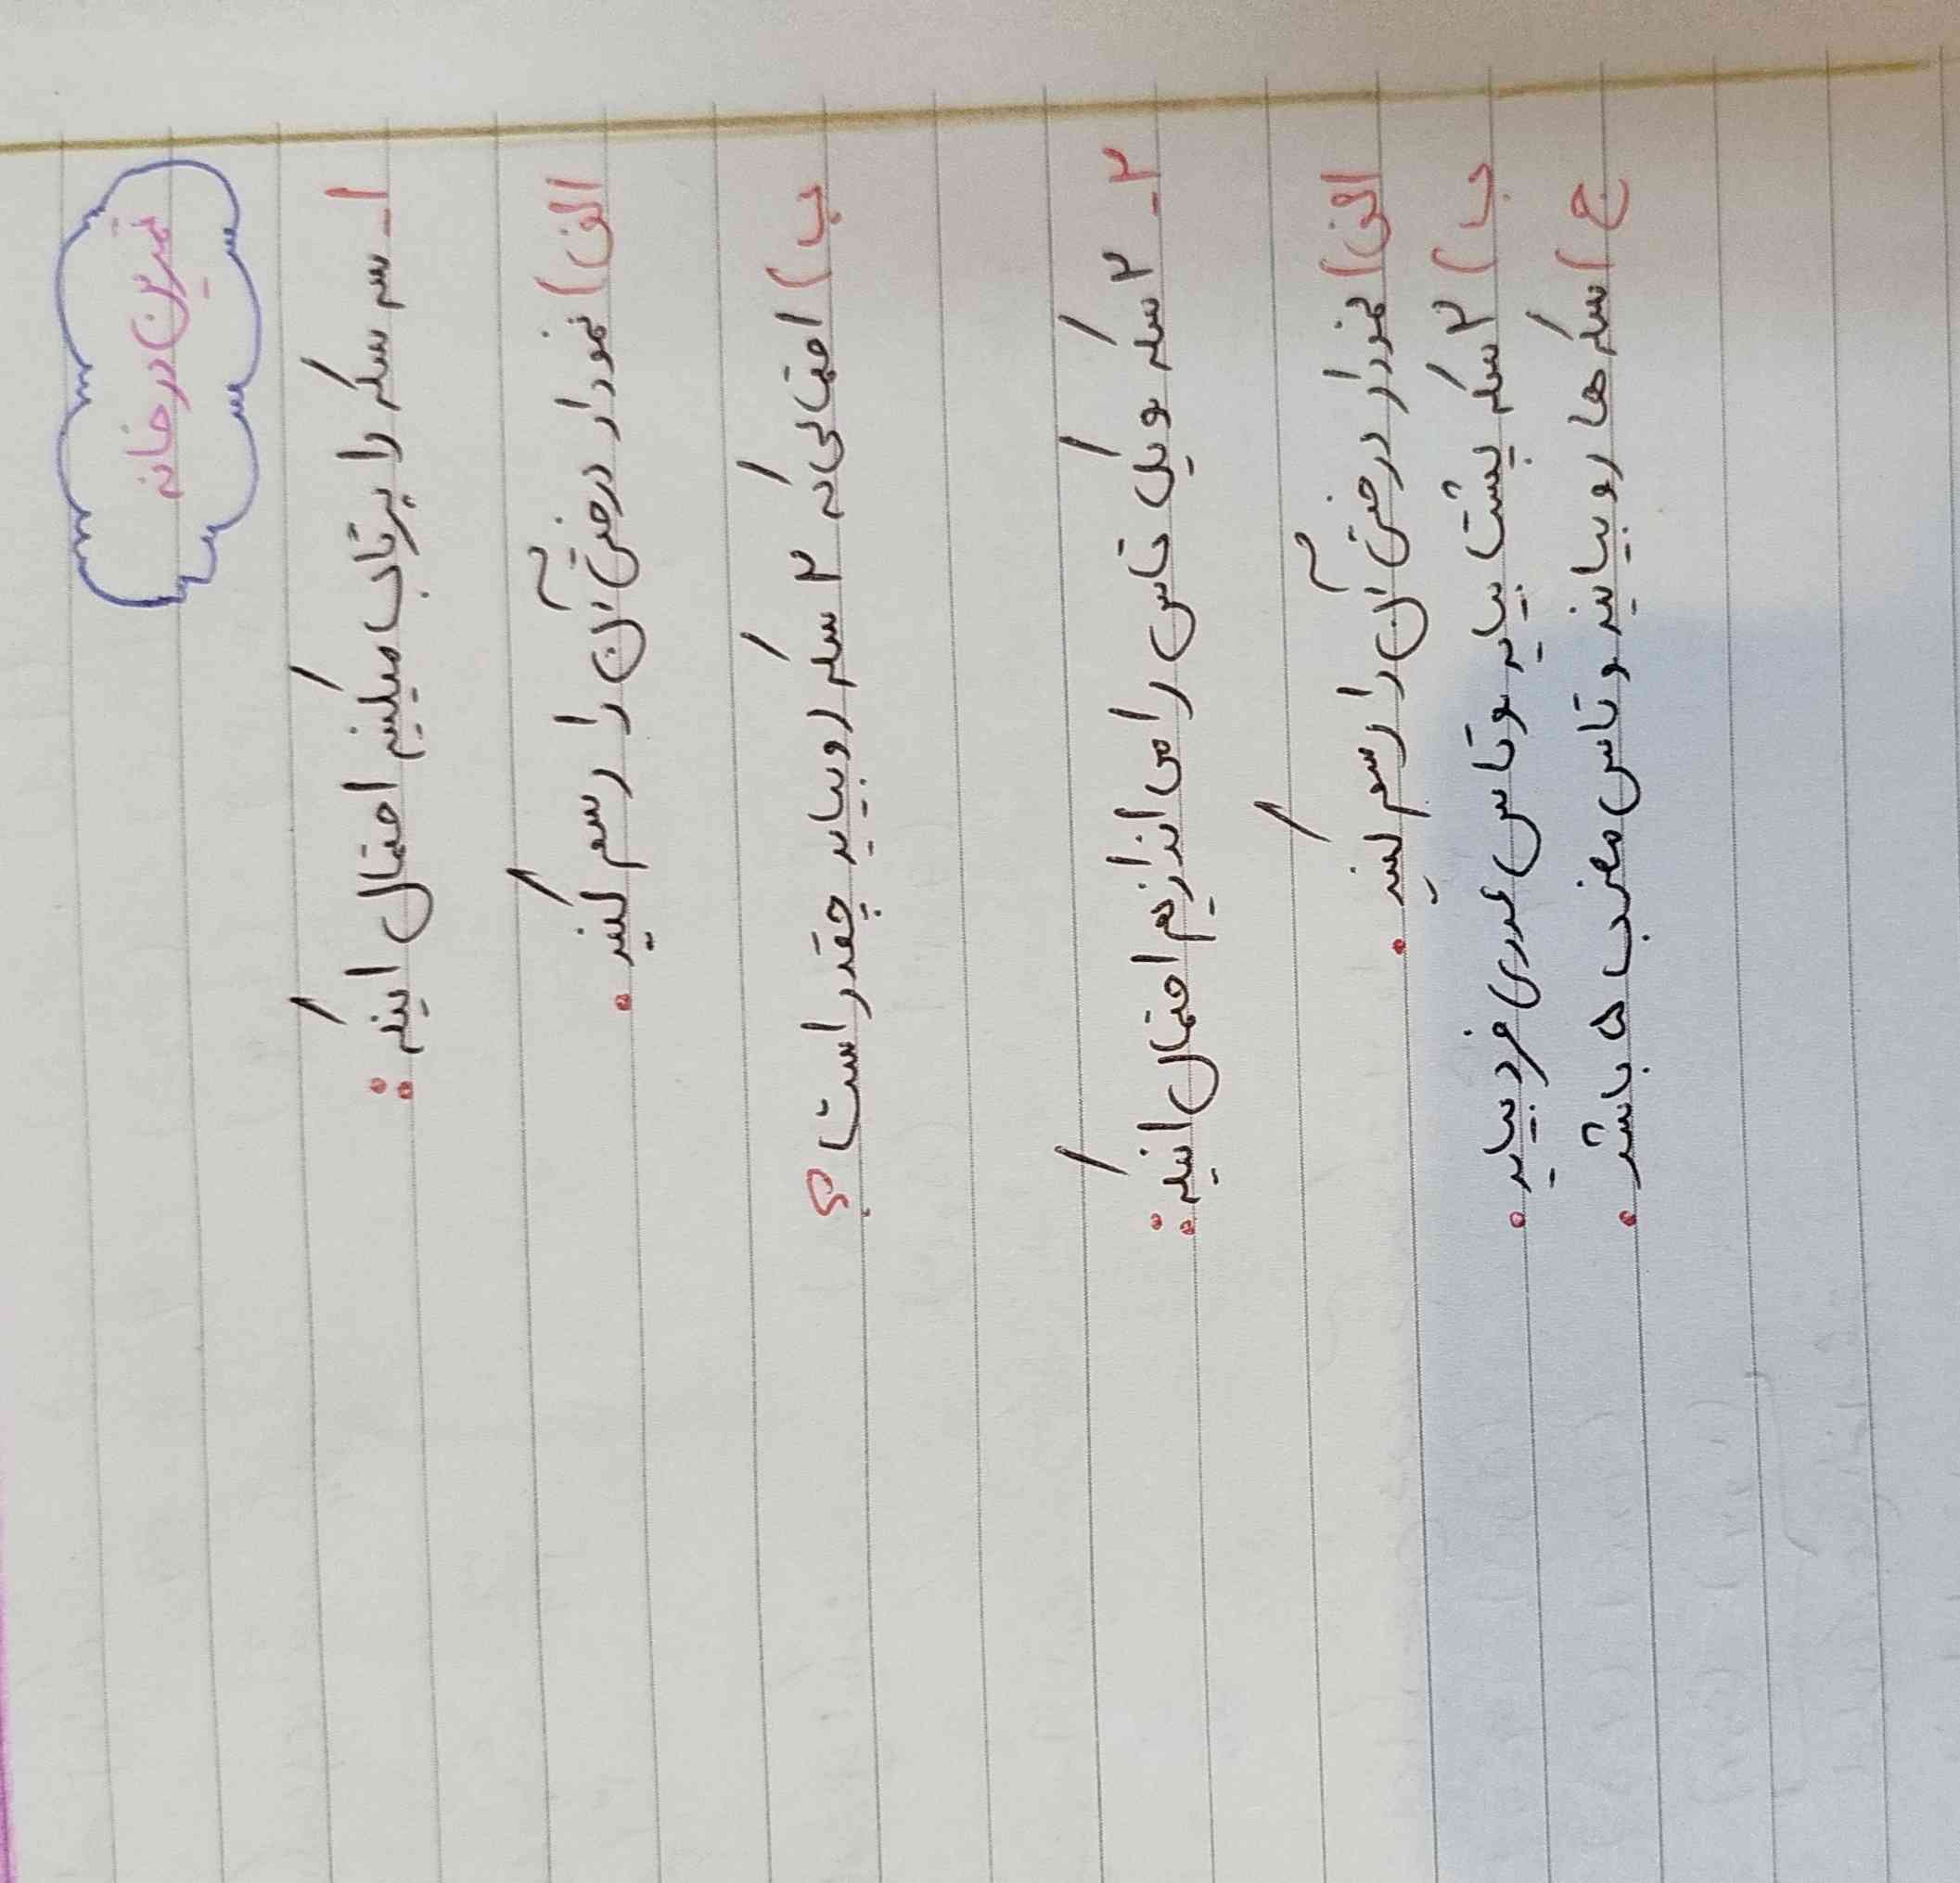 تمرین در خانه
۱_ سه سکه را پرتاب میکنیم احتمال اینکه :
الف) نمودار درختی آن را رسم کنید .
ب) احتمالی که ۲ سکه رو بیاید چقدر است ؟
۲_ ۲ سکه و یک تاس را می اندازیم احتمال اینکه :
الف) نمودار درختی آن را رسم کنید .
ب) ۲ سکه پشت بیاید و تاس عددی فرد بیاید .
ج) سکه ها رو بیایند و تاس مضرب ۵ باشد .